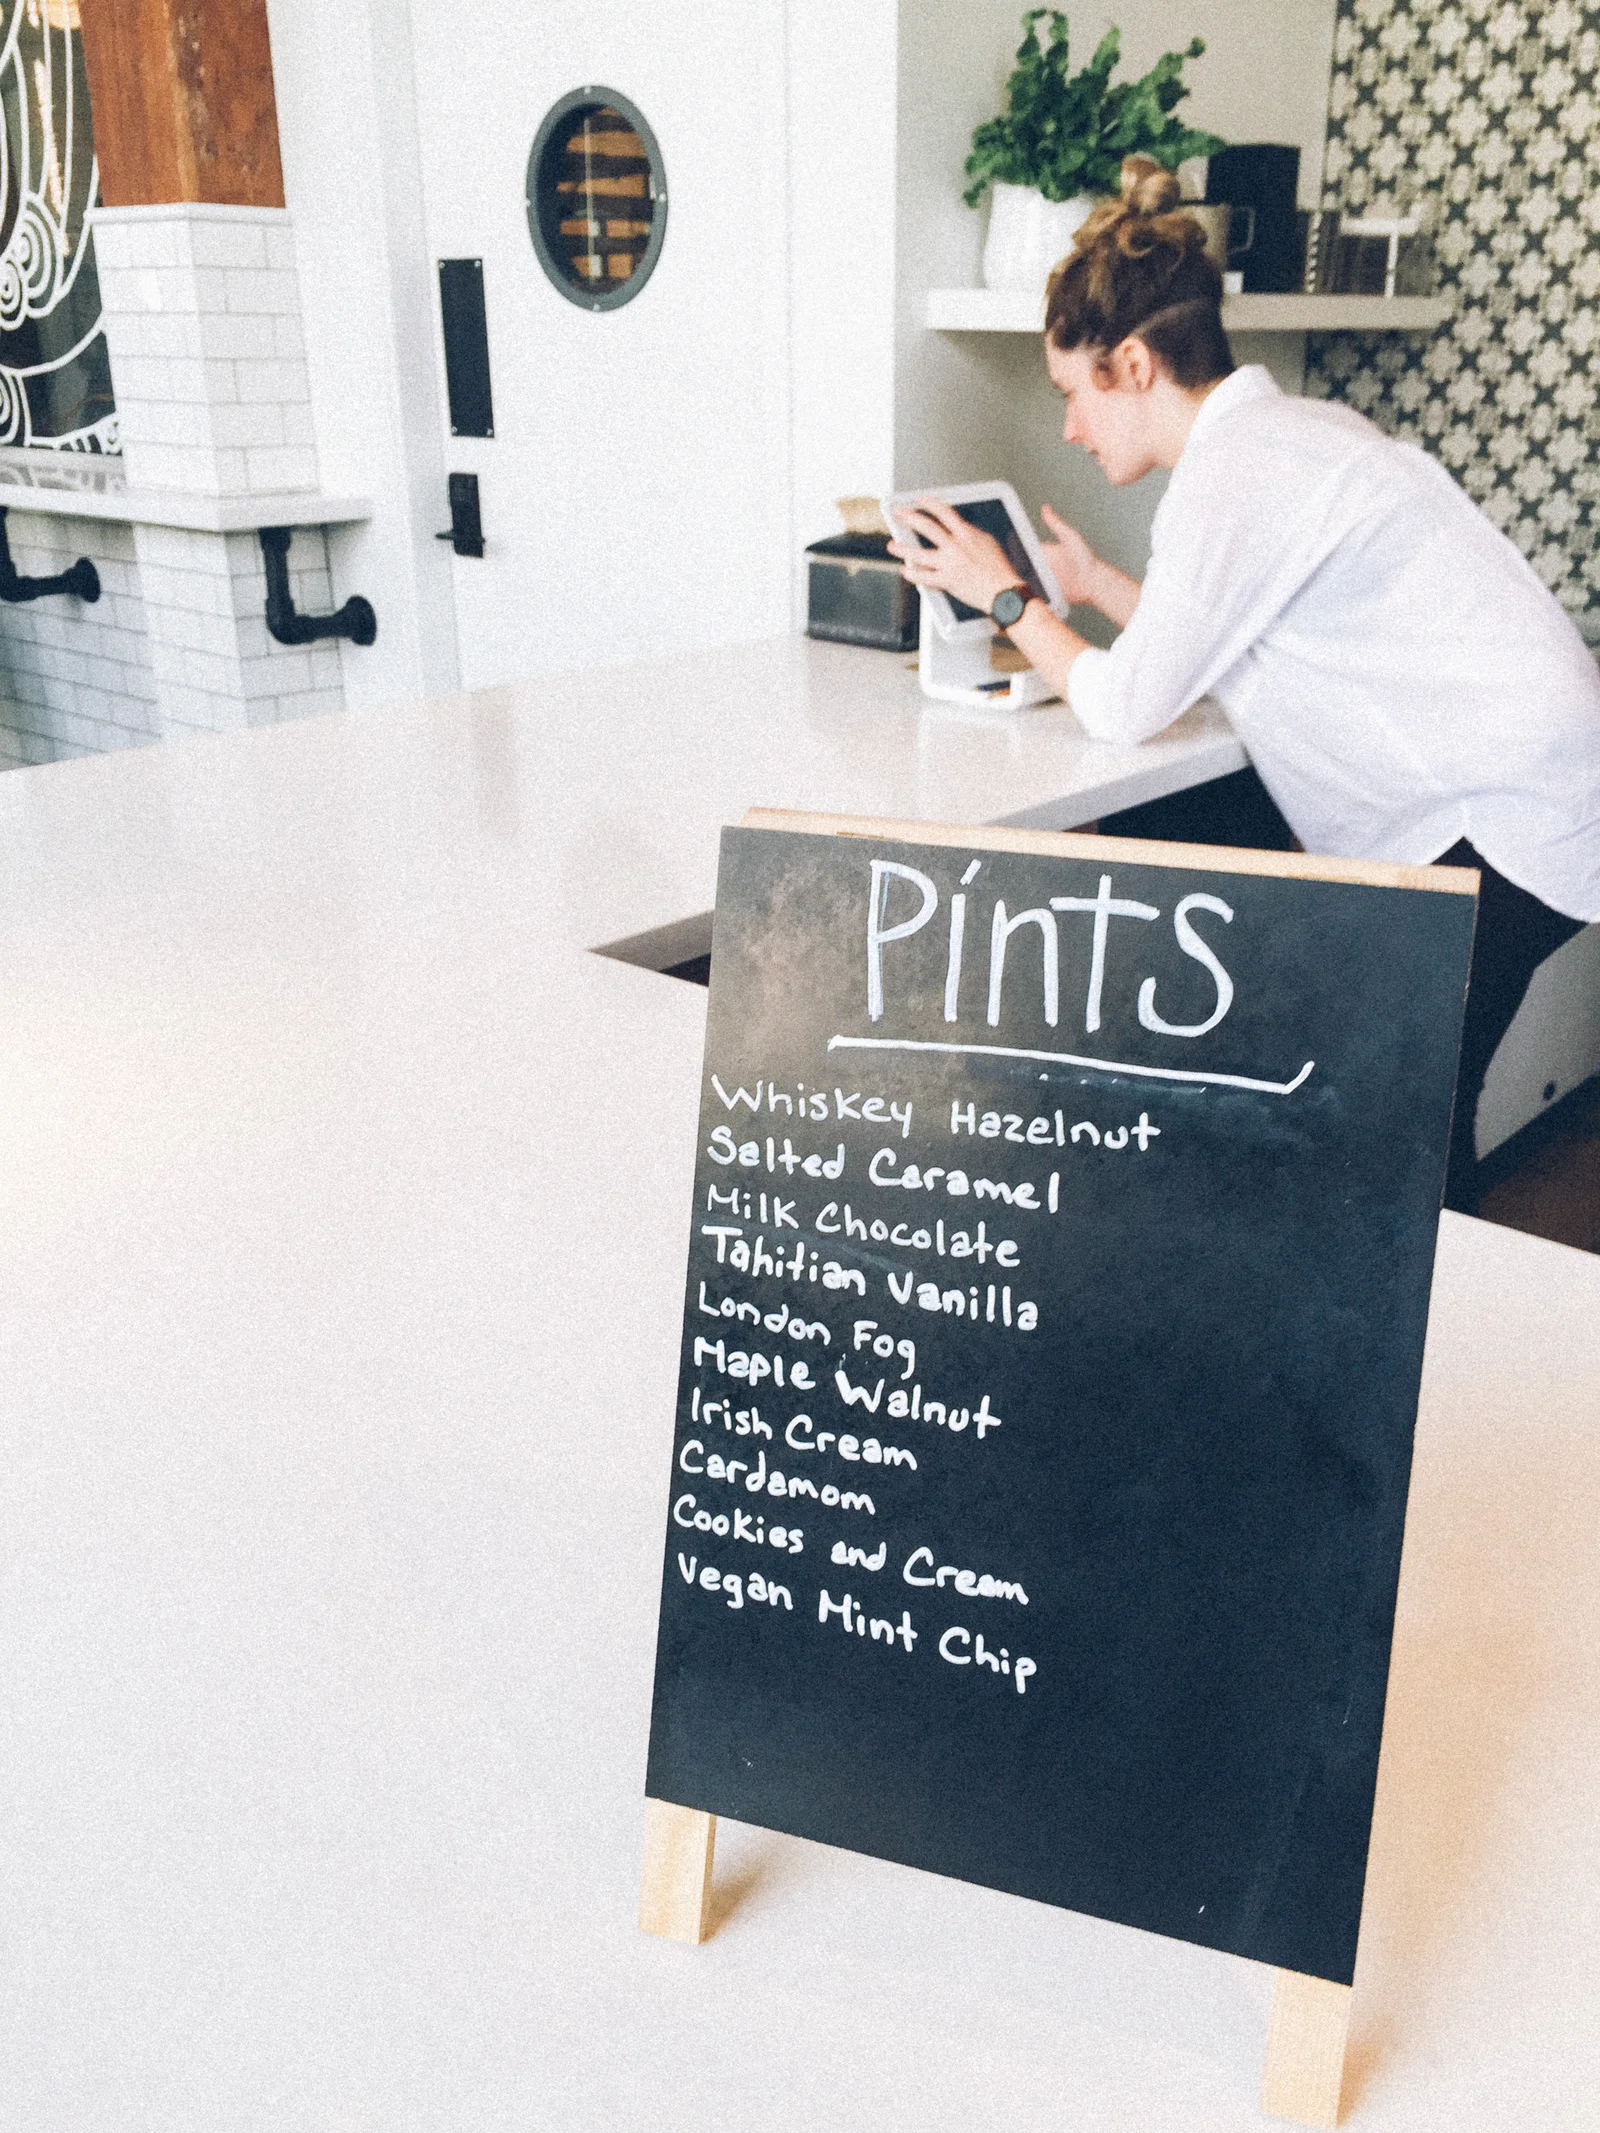 Pints
Whiskey Hazelnut
Salted Caramel
Milk Chocolate
Tahitian Vanilla
London Fog
Maple Walnut
Irish Cream
Cardamom
Cookies and Cream
Vegan Mint Chip